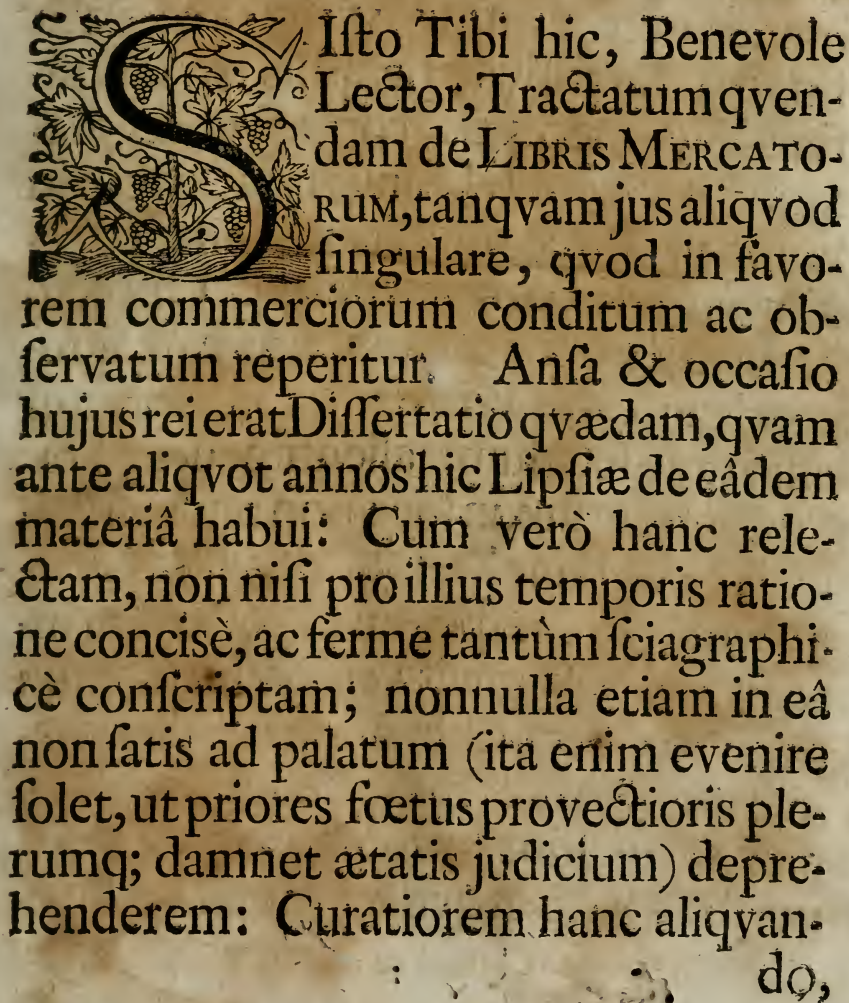 SIſto Tibi hic, Benevole
Lector, Tractatum qven-
dam de LIBRIS MERCATO-
RUM, tanqvam jus aliqvod
ſingulare, qvod in favo-
rem commerciorum conditum ac ob-
ſervatum reperitur. Anſa & occaſio
hujus rei erat Diſſertatio qvædam, qvam
ante aliqvot annos hic Lipſiæ de eâdem
materiâ habui: Cum verò hanc rele-
ctam, non niſi pro illius temporis ratio-
ne conciſè, ac ferme tantùm ſciagraphi-
cè conſcriptam; nonnulla etiam in eâ
non ſatis ad palatum (ita enim evenire
ſolet, ut priores fœtus provectioris ple-
rumq; damnet ætatis judicium) depre-
henderem: Curatiorem hanc aliqvan-
do,